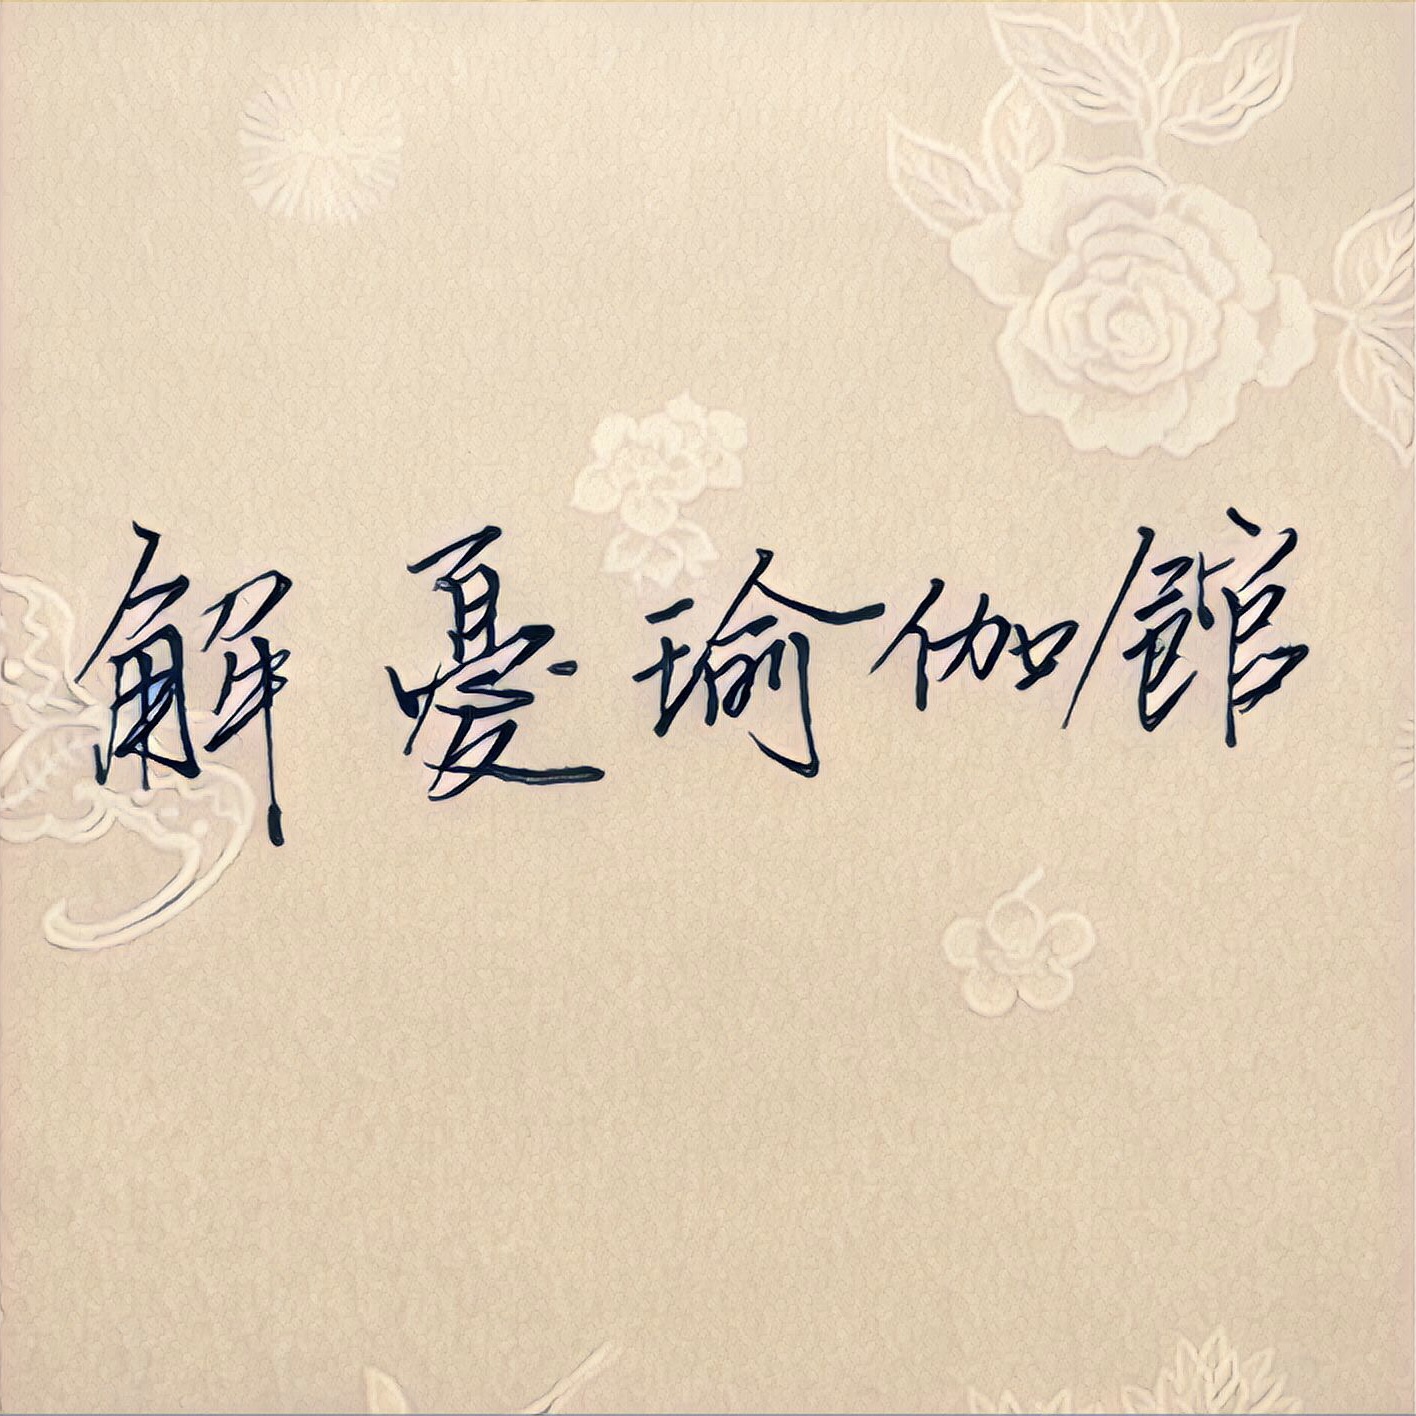 解憂瑜伽館